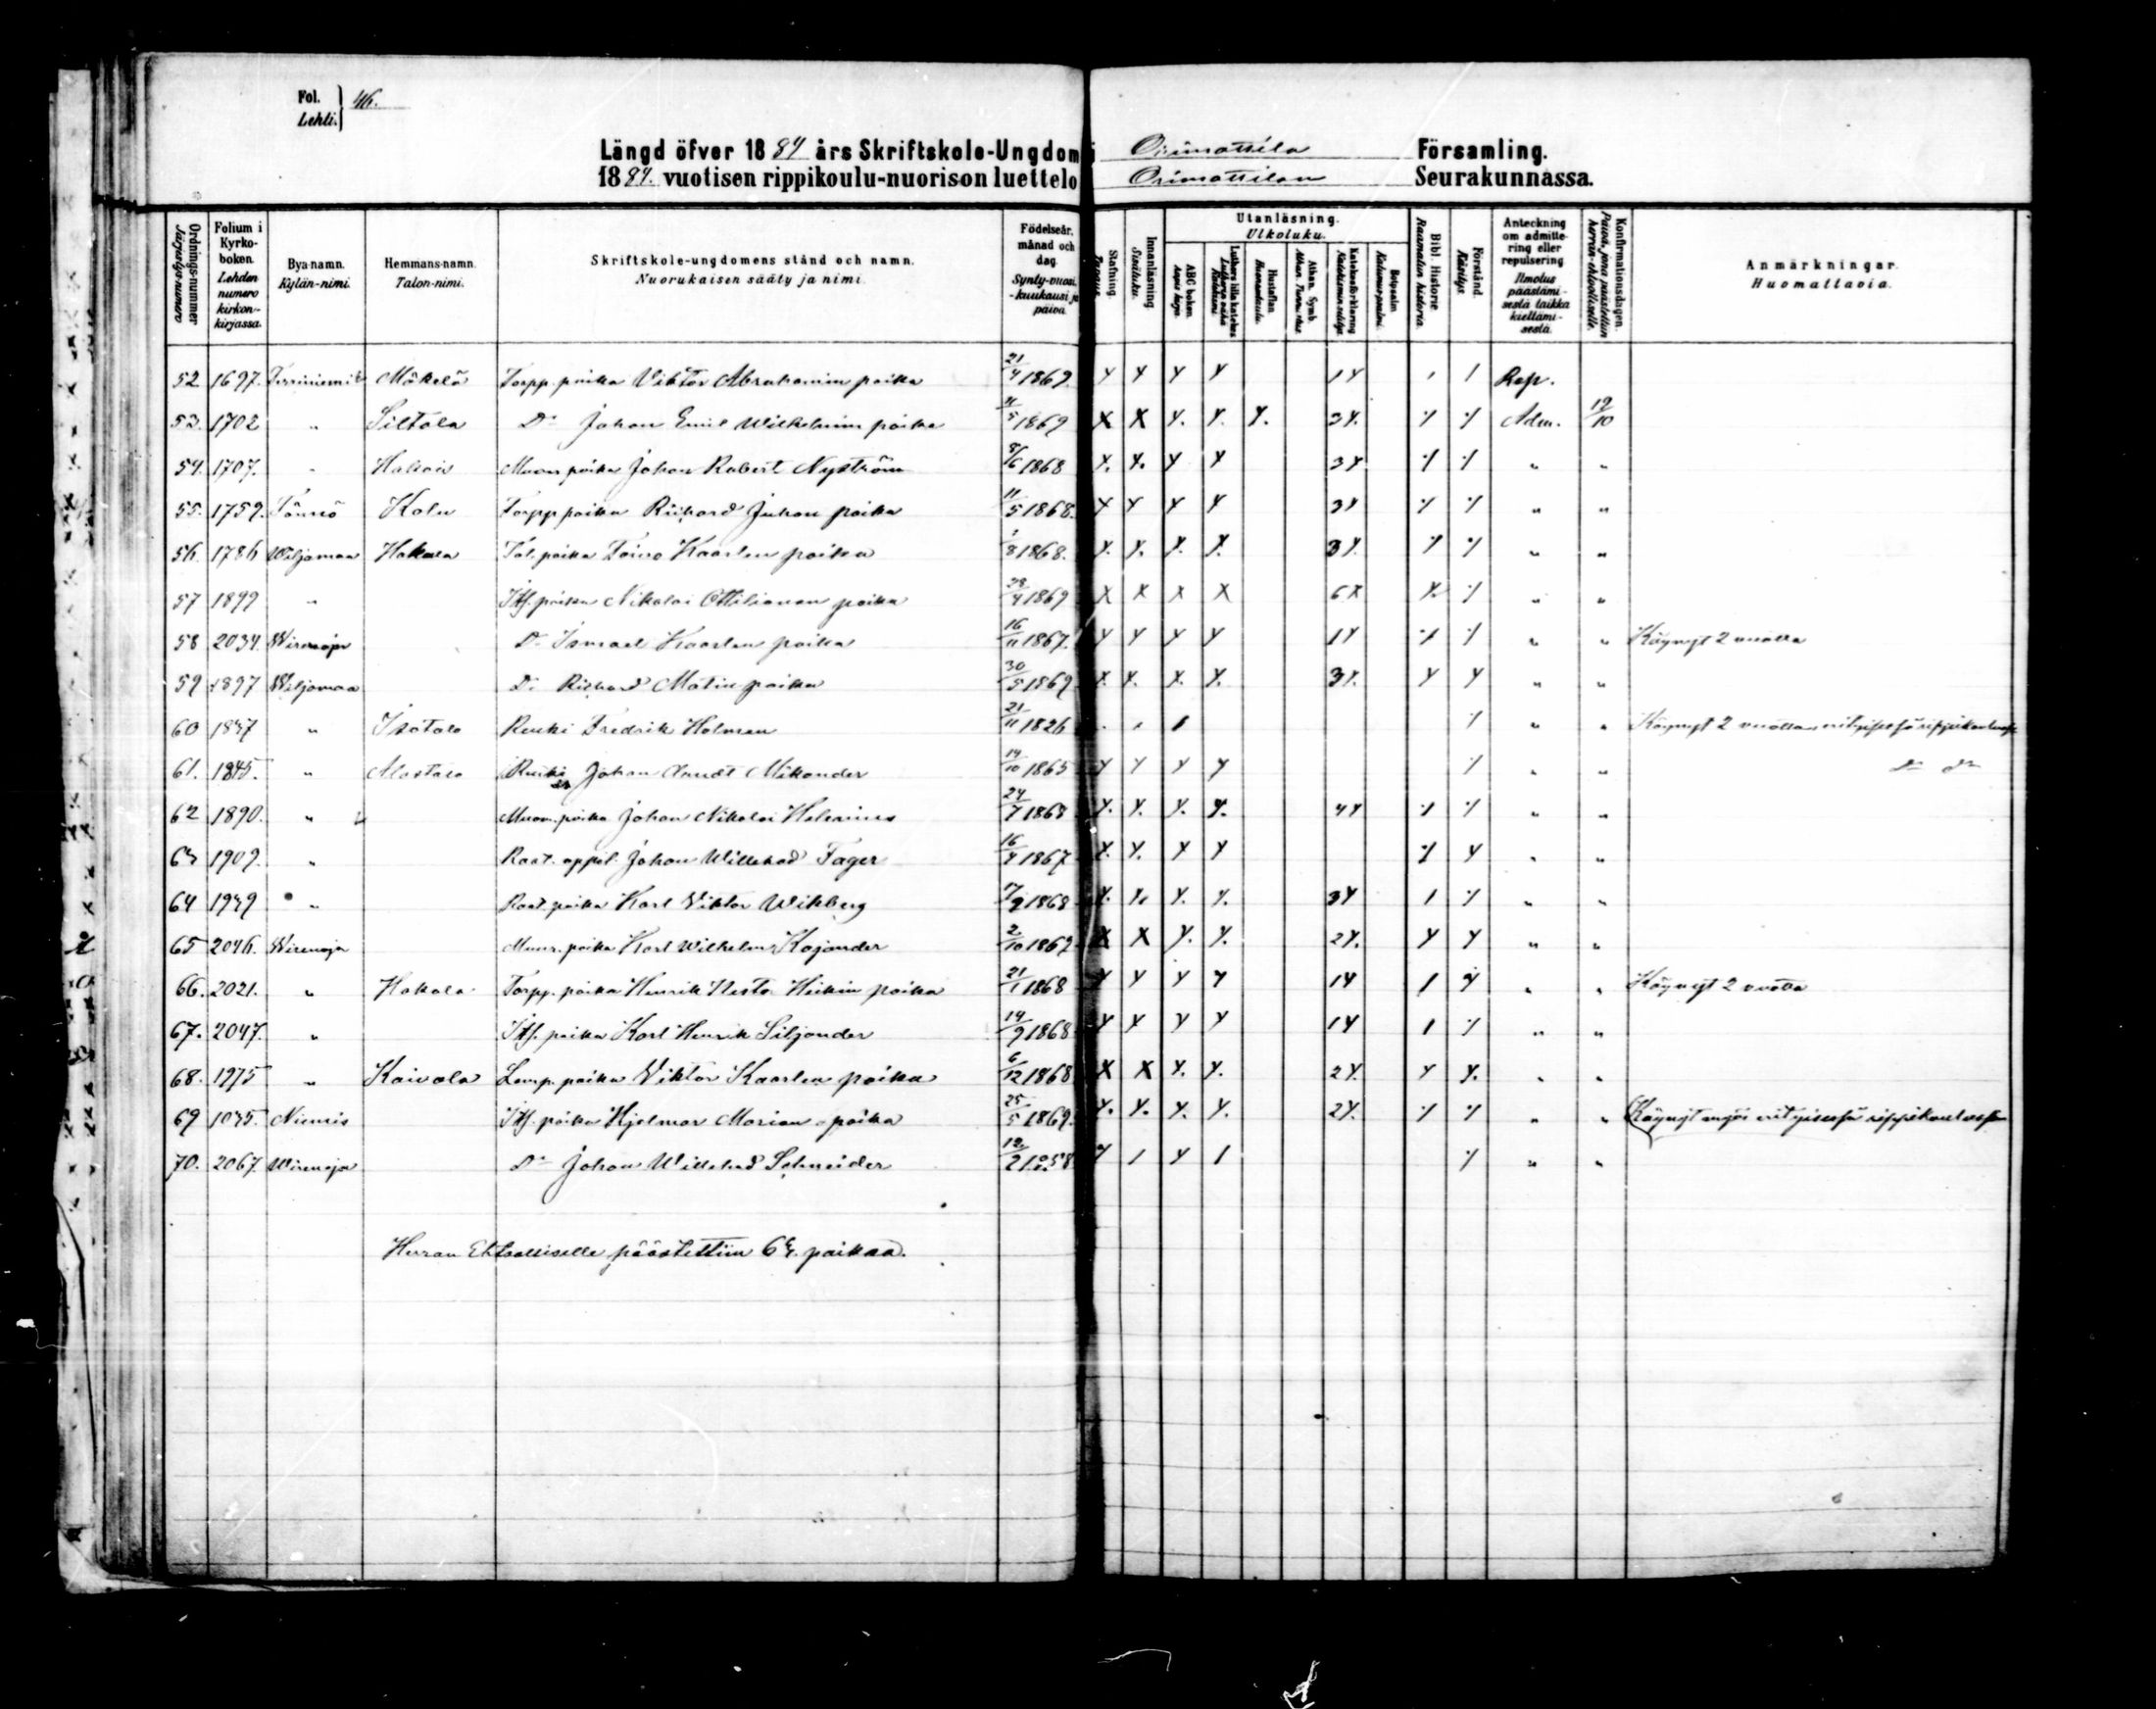 Fol. 46.
Lehti.
Längd öfver 1884 års Skriftskole-Ungdom i Orimattila Församling.
1884. vuotisen rippikoulu-nuorison luettelo Orimattilan Seurakunnassa.
Ordnings-nummer Järjestys-numero
Folium i Kyrko-boken. Lehden numero kirkon-kirjassa.
Bya-namn. Kylän-nimi.
Hemmans-namn. Talon-nimi.
Skriftskole-ungdomens stånd och namn. Nuorukaisen sääty ja nimi.
Födelseår, månad och dag. Synty-vuosi, -kuukausi ja päivä
Stafning. Tavaus.
Innanläsning. Sisäluku.
Utanläsning. Ulkoluku.
ABC boken.
Luthers lilla katekes
Hustaflan Huoneentaulu.
Athan. Symb.
Katekesförklaring
Botpsalm. Katumus-psalmi.
Bibl. Historie Raamatun historia.
Förstånd. Käsitys.
Anteckning om admittering eller repulsering Ilmoitus päästämisestä taikka kieltämisestä.
Konfirmationsdagen. Päivä, jona päästettiin Herran-ehtoolliselle.
Anmärkningar. Huomattavia.
52 1697. Mäkelä Torpp. poika Viktor Abrahamin poika 21/4 1869 Y Y Y Y 1Y 1 1 Rep.
53. 1702 " Siltala Do Johan Emil Wilhelmin poika 11/5 1869 X X Y. Y. Y. 3Y. ⁒ ⁒ Adm. 12/10
54. 1707. " Muon. poika Johan Robert Nyström 8/6 1868 Y. Y. Y Y 3Y ⁒ ⁒ " "
55. 1759. Tönnö Kolu Torpp poika Richard Juhon poika 11/5 1868. Y Y Y Y 3Y ⁒ ⁒ " "
56. 1786 Wiljamaa Hakala Tal. poika Toivo Kaarlen poika 1868. Y. Y. Y. Y. 3Y. ⁒ ⁒ " "
57 1899 " Itf. poika Nikolai Ottilianan poika 28/4 1869 X X X X 6X Y. ⁒ " "
58 2034 Wirenoja Do Ismael Kaarlen poika 16/11 1867. Y Y Y Y 1Y ⁒ ⁒ " " Käynyt 2 vuotta
59 1897 Wiljamaa Do Richard Matin poika 30/5 1869 Y. Y. Y. Y. 3Y. Y Y " "
60 1847 " Isotalo Renki Fredrik Holmen 21/11 1826 . , 1 ⁒ " " Käynyt 2 vuotta erityisessä rippikoulussa
61. 1845. " Alastalo Renki Johan Mikander 14/10 1865 Y Y Y Y ⁒ " " Do Do
62 1890. " Muon. poika Johan Nikolai Helenius 24/7 1868 Y. Y. Y. Y. 4Y ⁒ ⁒ " "
63 1909. " Raat. oppil. Johan Willehad Fager 16/4 1867 Y. Y. Y Y ⁒ Y " "
64 1949 " Raat. poika Karl Viktor Wikberg 1868 Y. Y. Y. Y. 3Y 1 ⁒ " "
65 2046. Wirenoja Muur. poika Karl Wilhelm Kajander 2/10 1869 X X Y. Y. 2Y. Y Y " "
66. 2021. " Hakala Torpp. poika Henrik Nestor Heikin poika 21/1 1868 Y Y Y Y 1Y 1 Y " " Käynyt 2 vuotta
67. 2047. " Itf. poika Karl Henrik Siljander 14/9 1868 Y Y Y Y 1Y 1 ⁒ " "
68. 1975 " Kaivola Lamp. poika Viktor Kaarlen poika 6/12 1868 X X Y. Y. 2Y. Y Y. " "
69 1035. Niemis Itf. poika Hjalmar Marian poika 25/5 1869. Y. Y. Y. Y. 2Y. ⁒ ⁒ " " Käynyt myös erityisessä rippikoulussa
70. 2067. Wirenoja Do Johan Willehad Schneider 12/2 1858 Y 1 Y 1 ⁒ " "
Herran Ehtoolliselle päästettiin 64. poikaa.